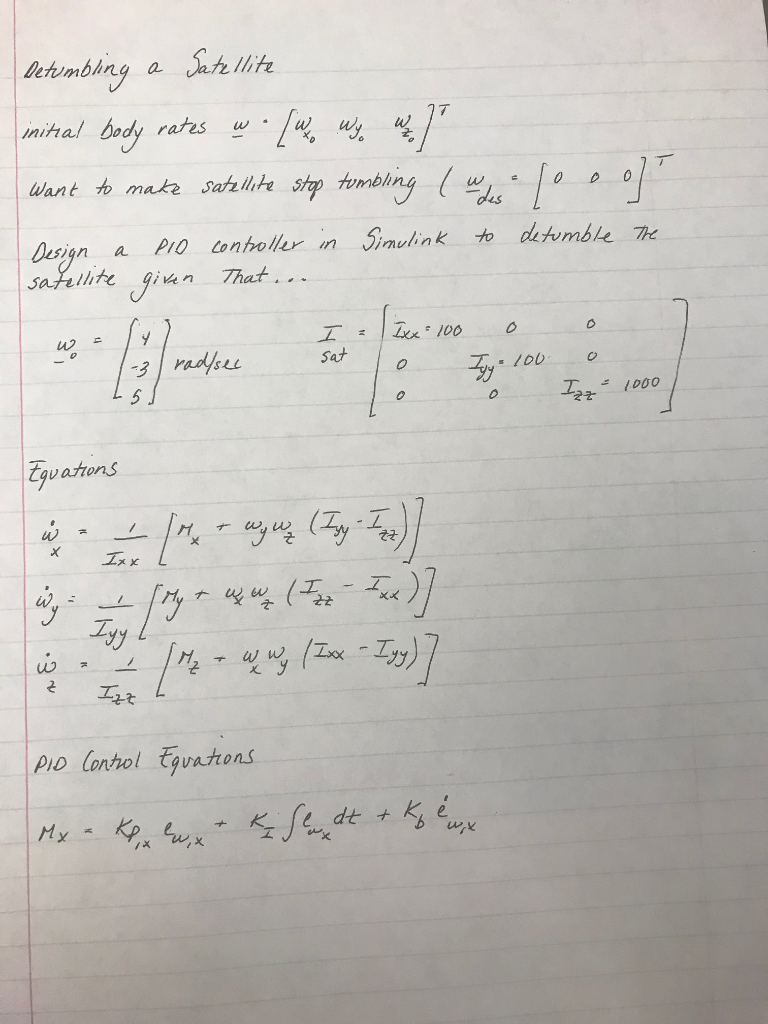 Detumbling a Satellite
initial body rates w = [w_x₀ w_y₀ w_z₀]ᵀ
Want to make satellite stop tumbling ( w_des = [0 0 0]ᵀ
Design a PID controller in Simulink to detumble the
satellite given That...
w₀ = [4 -3 5] rad/sec I_sat = [Ixx = 100 0 0
0 Iyy = 100 0
0 0 Izz = 1000]
Equations
ẇ_x = 1/Ixx [M_x + w_y w_z (Iyy - Izz)]
ẇ_y = 1/Iyy [M_y + w_x w_z (Izz - Ixx)]
ẇ_z = 1/Izz [M_z + w_x w_y (Ixx - Iyy)]
PID Control Equations
M_x = K_P,x e_w,x + K_I ∫e_w_x dt + K_D ė_w,x